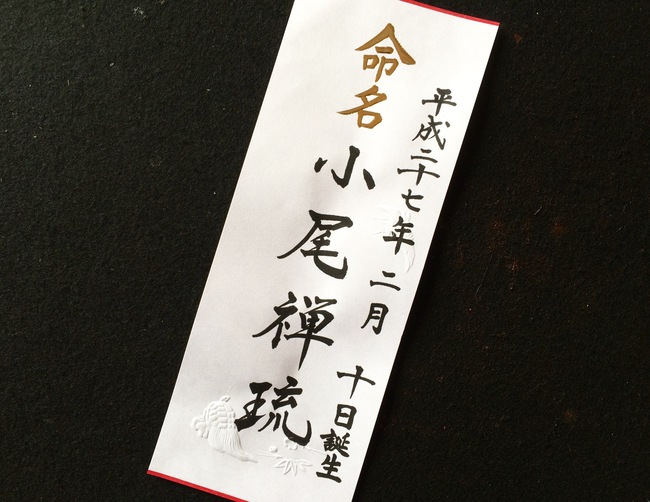 平成二十七年二月十日誕生
命名
小尾禅琉